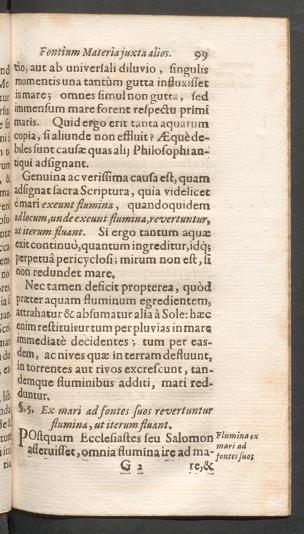 Fontium Materia juxta alios. 99
tio, aut ab universali diluvio, singulis
momentis una tantùm gutta influxisset
in mare; omnes simul non gutta, sed
immensum mare forent respectu primi
maris. Quid ergo erit tanta aquarum
copia, si aliunde non effluit? Æquè de-
biles sunt causæ quas alij Philosophi an-
tiqui adsignant.
Genuina ac verissima causa est, quam
adsignat sacra Scriptura, quia videlicet
è mari exeunt flumina, quandoquidem
ad locum, unde exeunt flumina, revertuntur,
ut iterum fluant. Si ergo tantum aquæ
exit continuò, quantum ingreditur, idq;
perpetuâ pericyclosi; mirum non est, si
non redundet mare.
Nec tamen deficit propterea, quòd
præter aquam fluminum egredientem,
attrahatur & absumatur alia à Sole: hæc
enim restituitur tum per pluvias in mare
immediatè decidentes; tum per eas-
dem, ac nives quæ in terram defluunt,
in torrentes aut rivos excrescunt, tan-
demque fluminibus additi, mari red-
duntur.
§. 5. Ex mari ad fontes suos revertuntur
flumina, ut iterum fluant.
POstquam Ecclesiastes seu Salomon
asseruisset, omnia flumina ire ad ma-
Flumina ex
mari ad
fontes suos
G 2 re, &